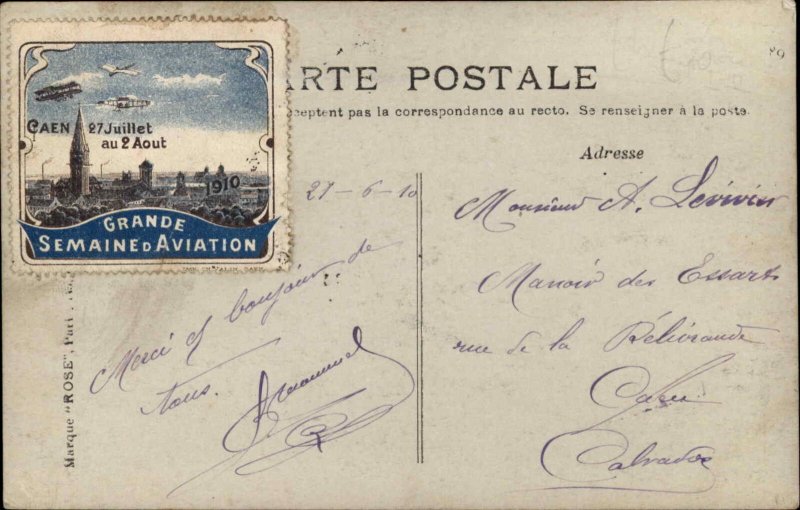 CARTE POSTALE
ceptent pas la correspondance au recto. Se renseigner à la poste.
CAEN 27 Juillet
au 2 Aout
1910
GRANDE
SEMAINE D'AVIATION
Adresse
27-6-10
Merci et bonjour de
tous.
Monsieur A.
Manoir des Essarts
rue de la
Caen
Calvados
Marque "ROSE", Paris